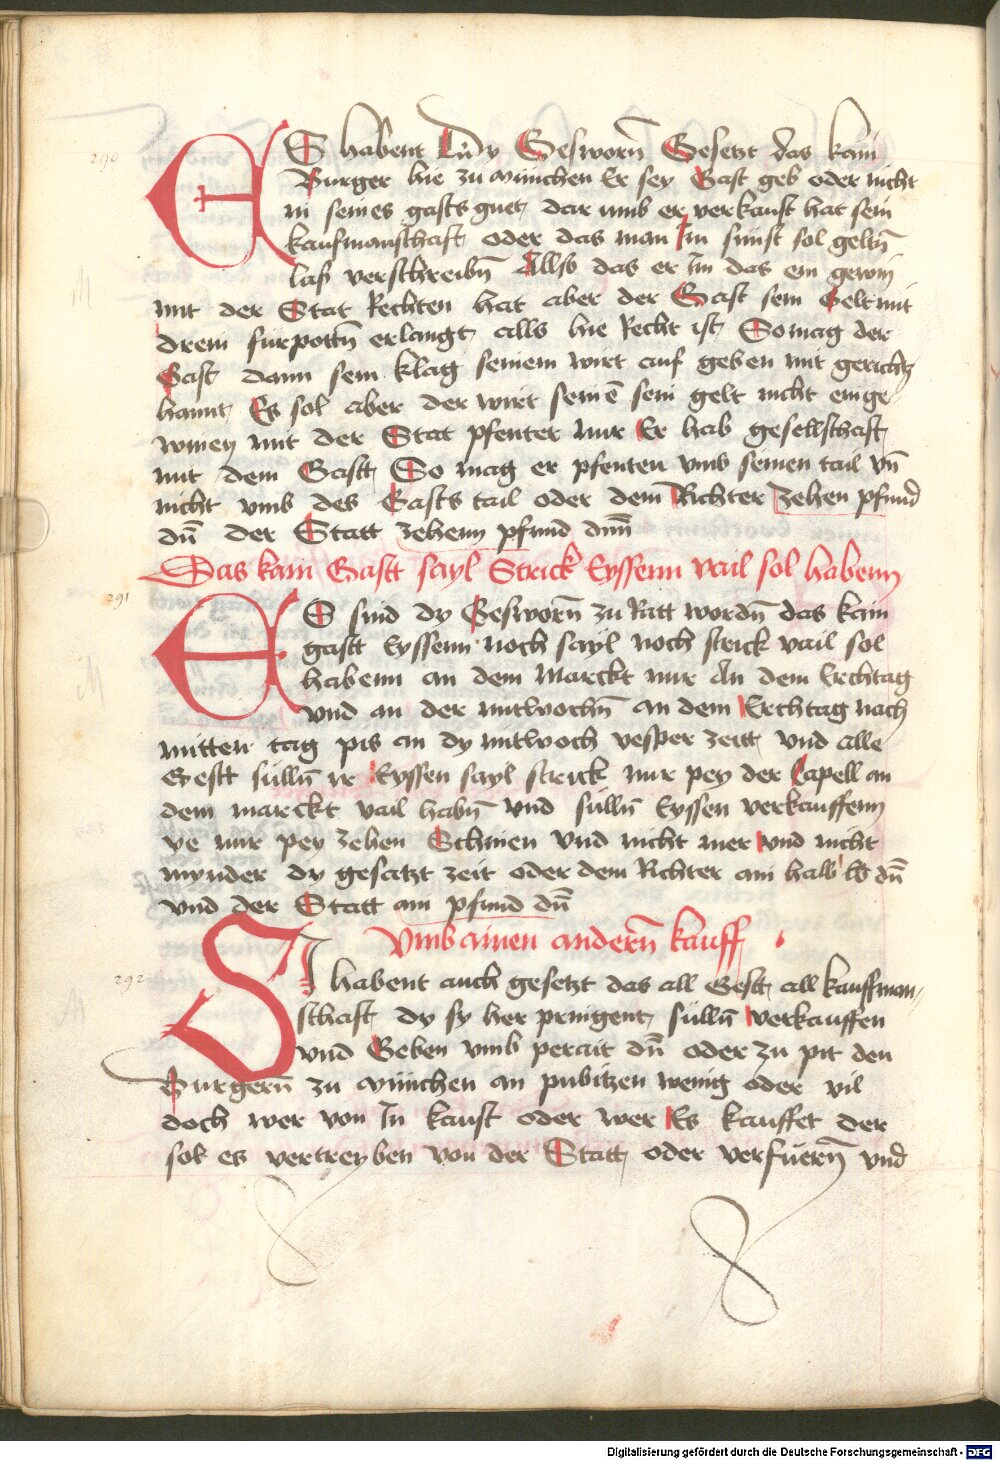 290
ES habent Dy Gesworñ Gesetzt das kain
Burger hie zu münchen Er sey Gast geb oder nicht
in seines gasts guet, dar umb er verkauft hat sein
kaufmanschaft, oder das man Im sünst sol geltñ
laß verschreibñ Allso das er Im das ein gewin
mit der Stat Rechten hat aber der Gast sein Gelt mit
drein fürpottñ erlangt, alls hie Recht ist, So mag der
Gast dann sein klag seinem wirt auf geben mit gerichtz
hannt, Es sol aber der wirt seinē sein gelt nicht einge
winen mit der Stat pfenter nur Er hab gesellschaft
mit dem Gastt, So mag er pfenten vmb seinen tail vñ
nicht vmb des Gasts tail oder dem Richter zehen pfund
dñ der Statt zehenn pfund dñ
Das kain Gastt sayl Strick Eyssenn vail sol habenn
291
ES sind dy Gesworñ zu Ratt wordñ das kain
gastt Eyssenn noch sayl noch strick vail sol
habenn an dem Marckt nur An dem Erchtag
vnd an der mitwochñ an dem Erchtag nach
mitten tag pis an dy mitwoch vesper zeitt, vnd alle
Gestt süllñ ir Eyssen sayl strick nur pey der Capell an
dem marckt vail habñ vnd süllñ Eyssen verkauffenn
ye nur pey zehen Schinen vnd nicht mer vnd nicht
mynder dy gesatzt zeit oder dem Richter ain halb lb dñ
vnd der Statt ain pfund dñ
Vmb ainen anderñ kauff
292
SI habent auch gesetzt das all Gestt, all kauffman
schaft, dy sy her pringent, süllñ verkauffen
vnd Geben vmb perait dñ oder zu pit den
Burgerñ zu münchen an pubitzen wenig oder vil
doch wer von In kauft oder wer Es kauffet der
sol es vertreyben von der Statt, oder verfüerñ vnd
Digitalisierung gefördert durch die Deutsche Forschungsgemeinschaft - DFG